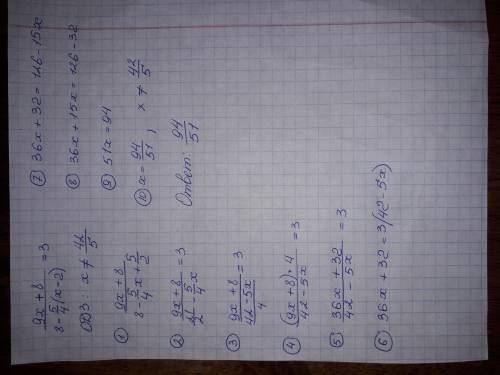 (9x + 8)/(8 - 5/4(x-2)) = 3
ОДЗ: x ≠ 42/5
① (9x + 8)/(8 - 5/4 x + 5/2)
② (9x + 8)/(21/2 - 5/4 x) = 3
③ (9x + 8)/((42-5x)/4) = 3
④ ((9x + 8)·4)/(42 - 5x) = 3
⑤ (36x + 32)/(42 - 5x) = 3
⑥ 36x + 32 = 3(42 - 5x)
⑦ 36x + 32 = 126 - 15x
⑧ 36x + 15x = 126 - 32
⑨ 51x = 94
⑩ x = 94/51, x ≠ 42/5
Ответ: 94/51